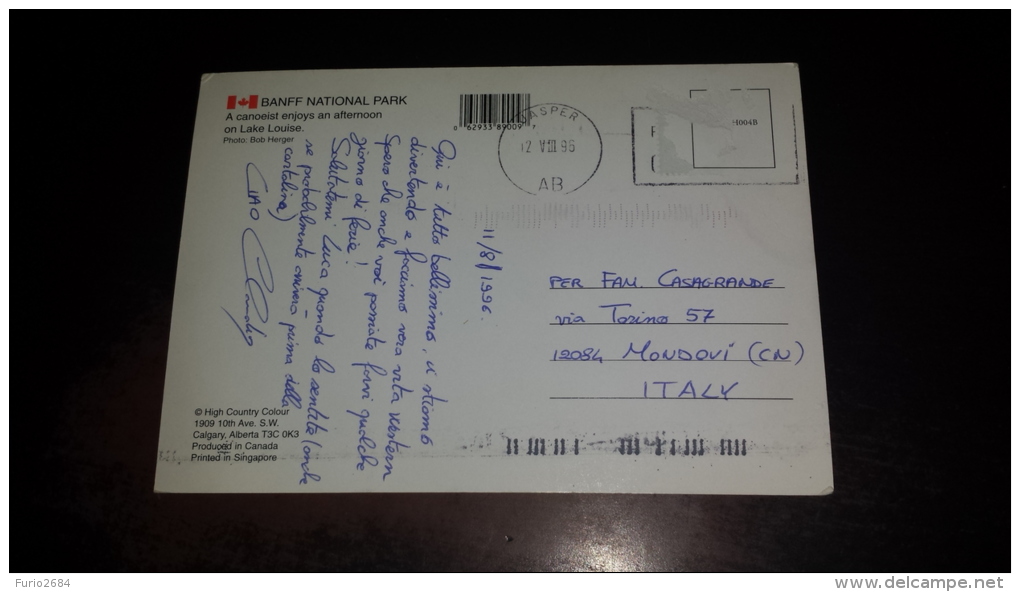 BANFF NATIONAL PARK
A canoeist enjoys an afternoon
on Lake Louise.
Photo: Bob Herger
0 62933 89009 7
JASPER
12 VIII 96
AB
H004B
11/8/1996.
Qui è tutto bellissimo, ci stiamo
divertendo e facciamo vera vita western
Spero che anche voi possiate farvi qualche
giorno di ferie!
Salutatemi Luca quando lo sentite (anche
se probabilmente arriverà prima della
cartolina)
CIAO
PER FAM. CASAGRANDE
via Torino 57
12084 MONDOVÍ (CN)
ITALY
© High Country Colour
1909 10th Ave. S.W.
Calgary, Alberta T3C 0K3
Produced in Canada
Printed in Singapore
Furio2684
www.delcampe.net